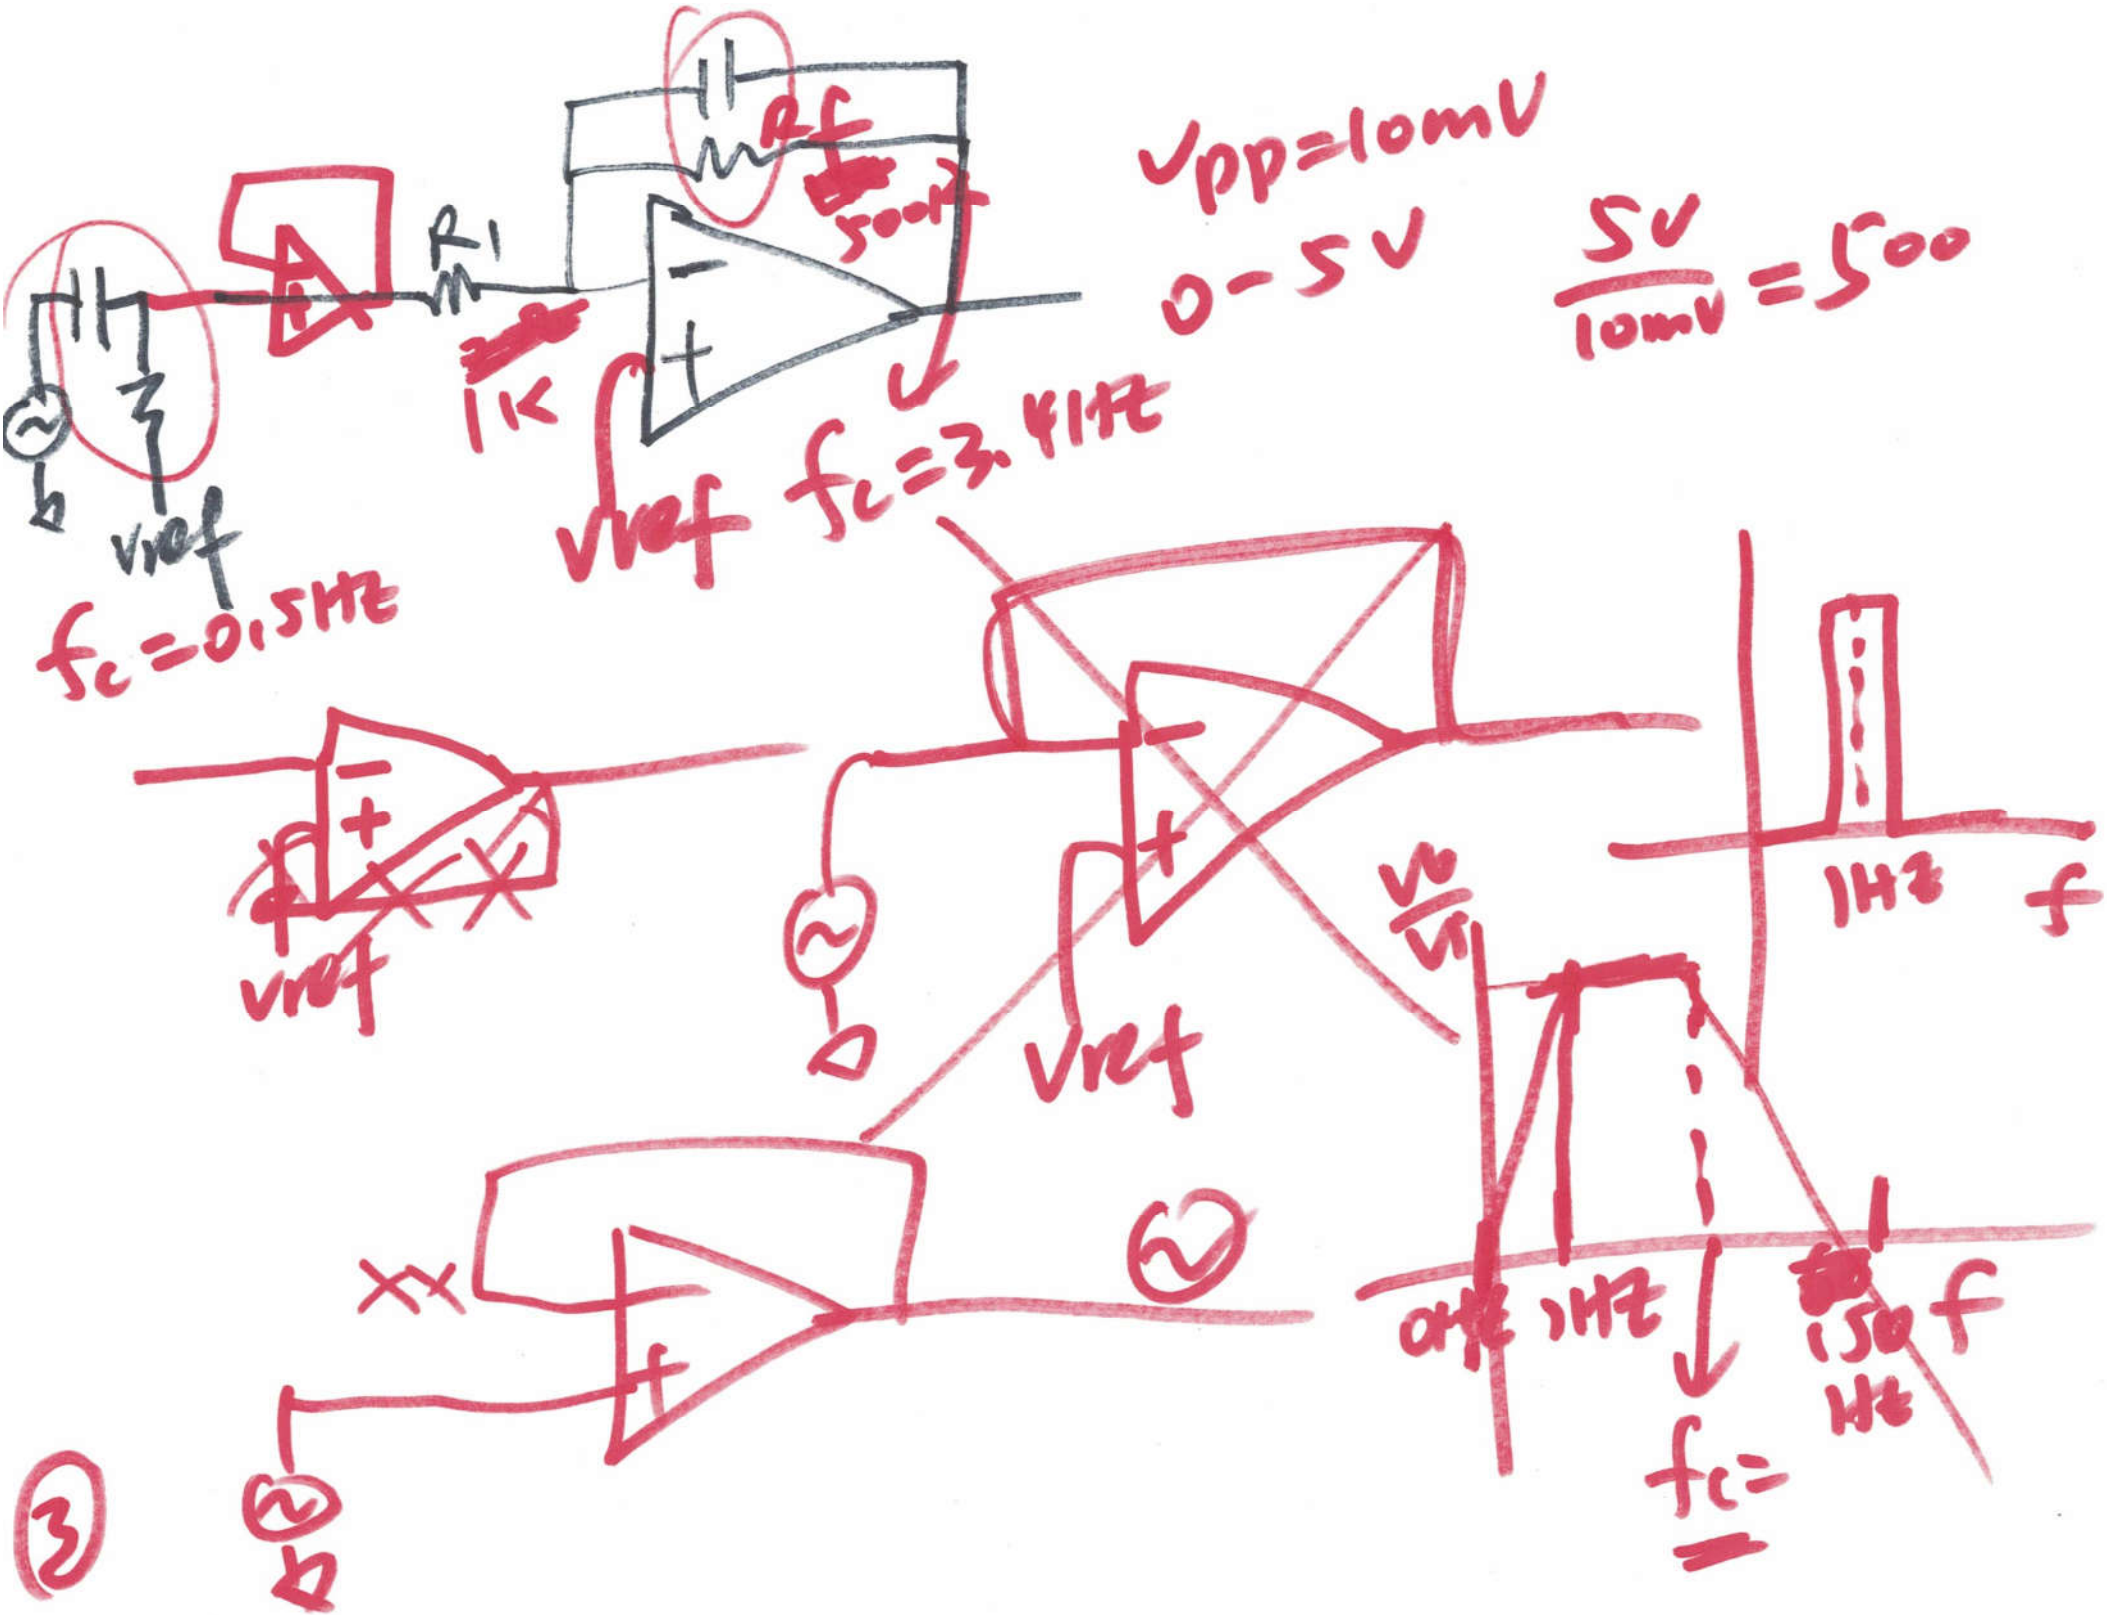 Rf
500K
R1
1K
Vpp=10mV
0-5V
5V
10mV
=500
vref
fc=0.5Hz
vref
fc=3.4Hz
vref
Vref
1Hz
f
Vo
Vi
0Hz
1Hz
150
Hz
f
fc=
xx
3